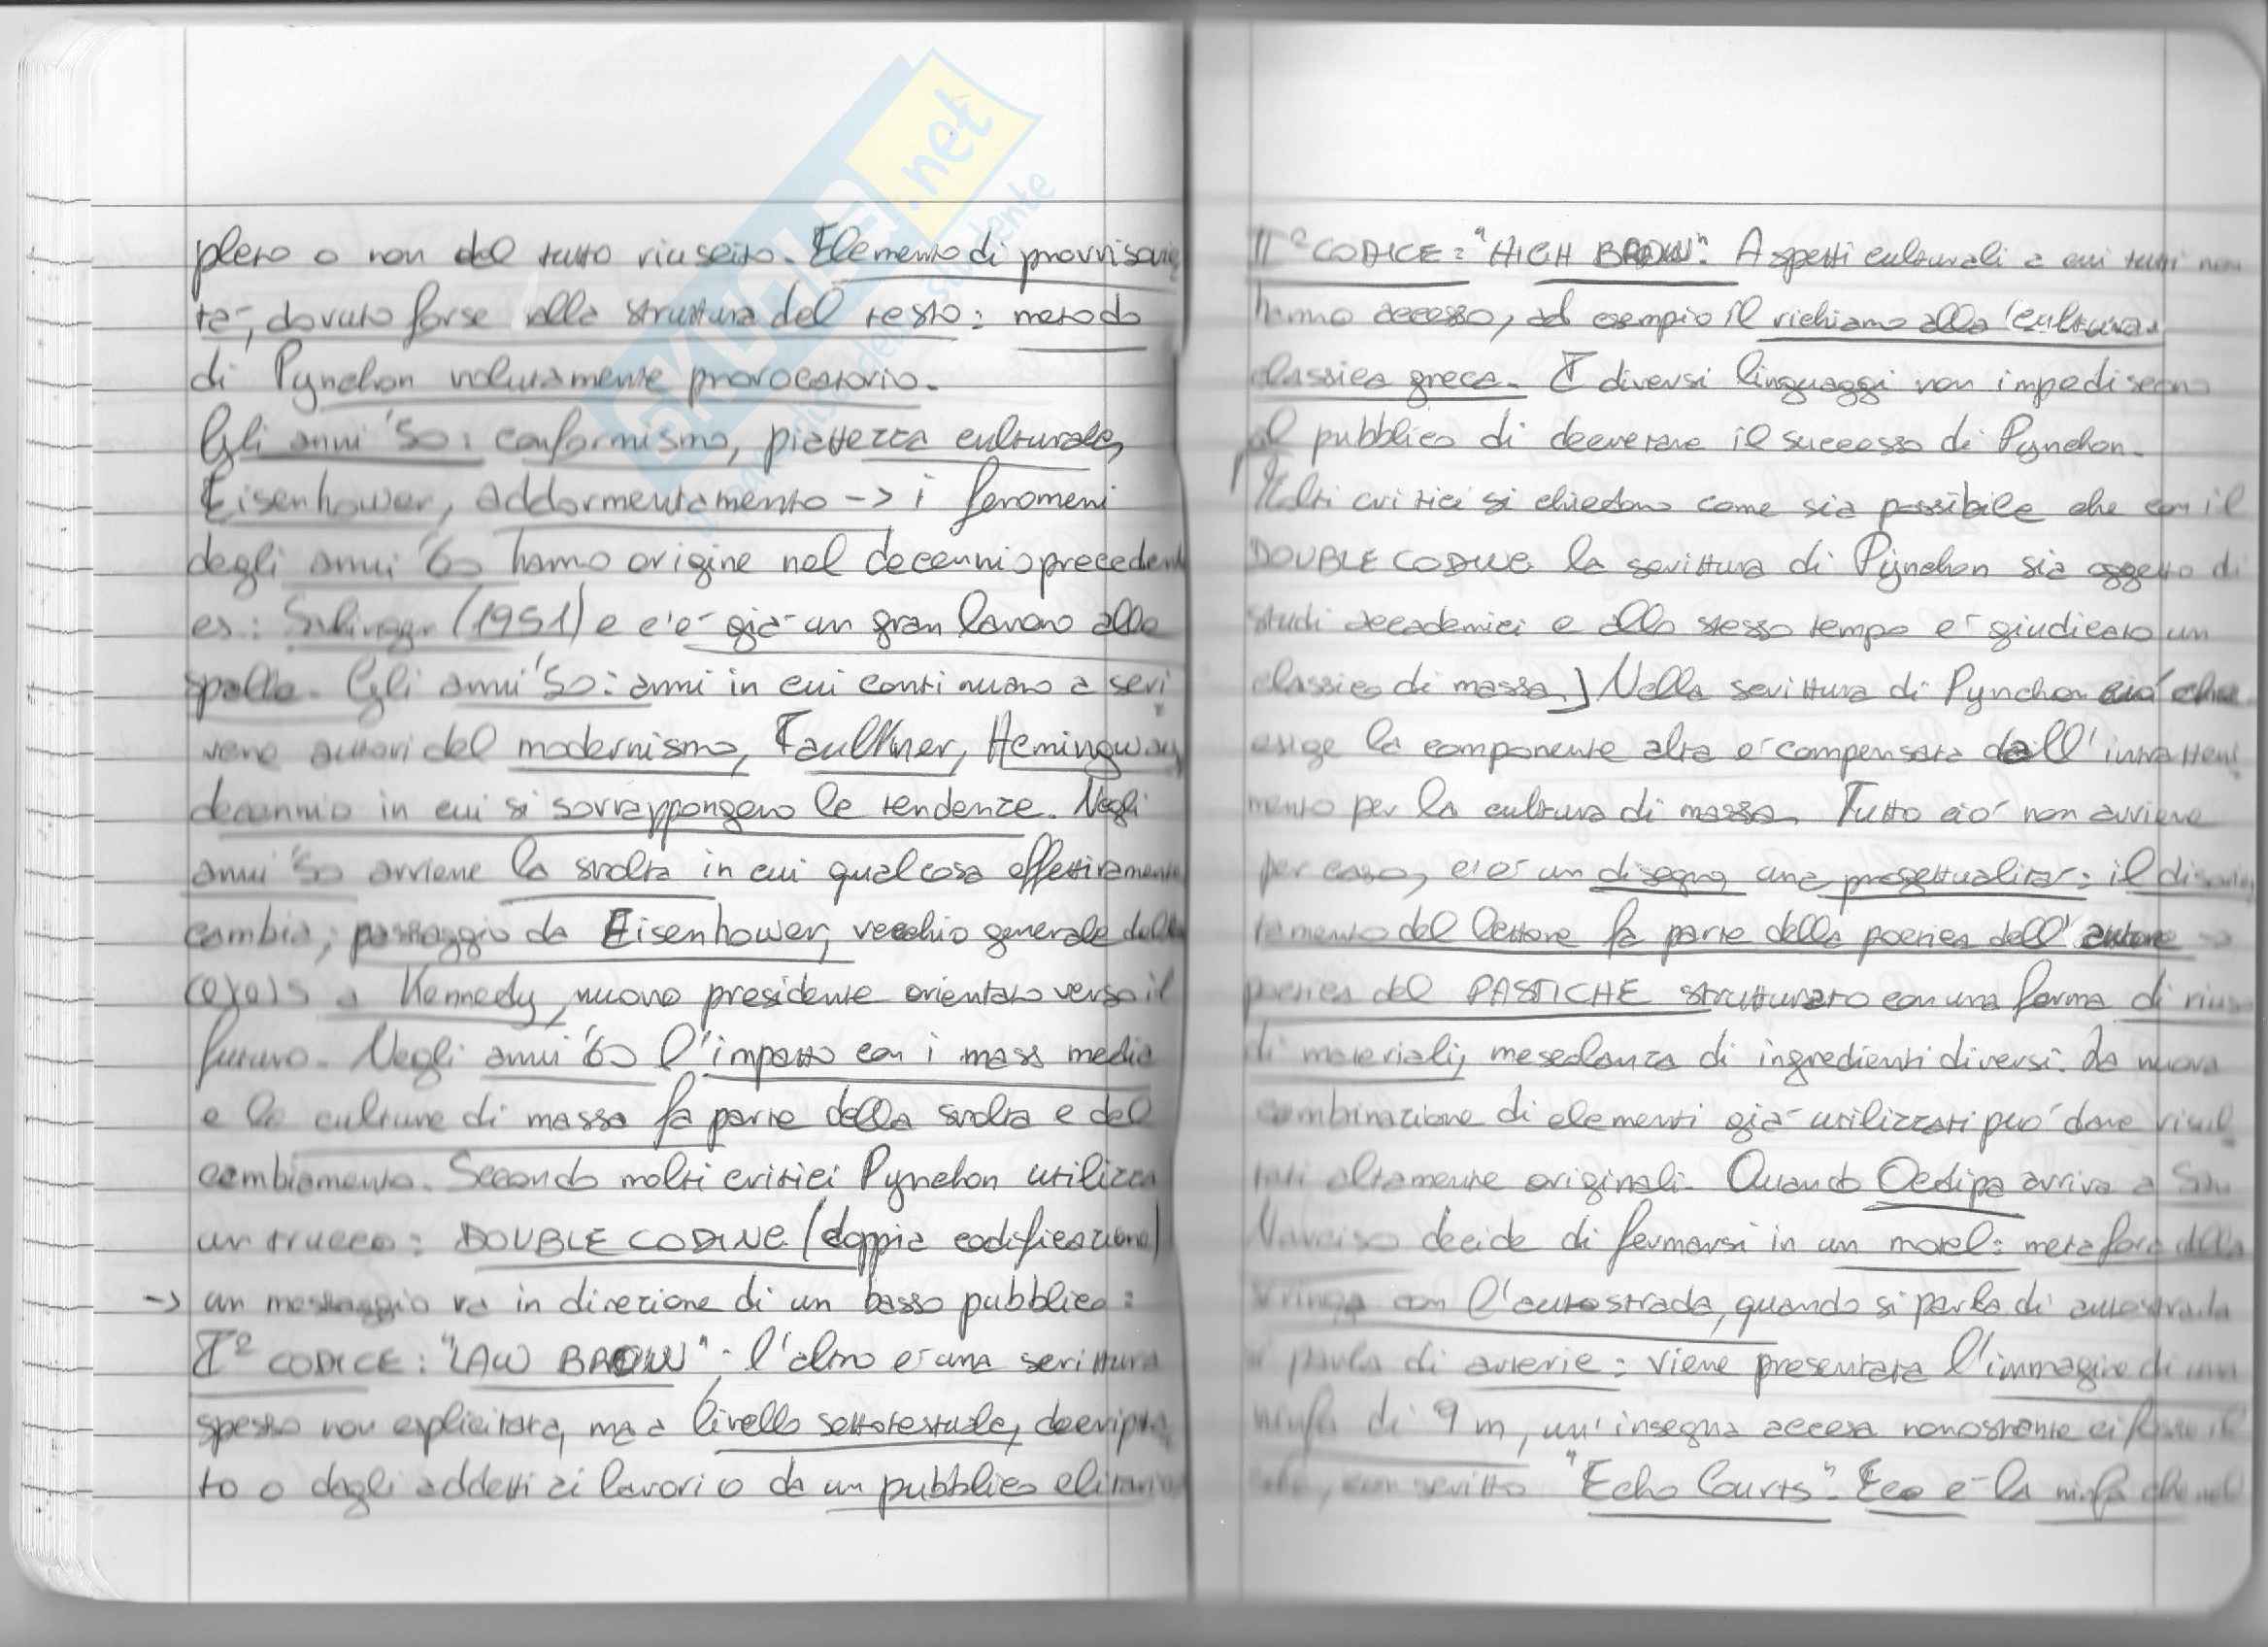 pleto o non del tutto riuscito. Elemento di provvisorie
tà, dovuto forse alla struttura del testo: metodo
di Pynchon volutamente provocatorio.
Gli anni '50: conformismo, piattezza culturale,
Eisenhower, addormentamento -> i fenomeni
degli anni '60 hanno origine nel decennio precedente
es: (1951) e c'è già un gran lavoro alle
spalle. Gli anni '50: anni in cui continuano a scri
vere autori del modernismo, Faulkner, Hemingway,
decennio in cui si sovrappongono le tendenze. Negli
anni '50 avviene la svolta in cui qualcosa effettivamente
cambia, passaggio da Eisenhower, vecchio generale della
a Kennedy, nuovo presidente orientato verso il
futuro. Negli anni '60 l'impatto con i mass media
e la cultura di massa fa parte della svolta e del
cambiamento. Secondo molti critici Pynchon utilizza
un trucco: DOUBLE CODING (doppia codificazione)
-> un messaggio va in direzione di un basso pubblico:
I° CODICE: "LAW BROW"; l'altro è una scrittura
spesso non esplicitata, ma a livello sottotestuale, decripta
to o dagli addetti ai lavori o da un pubblico elitario
II° CODICE: "HIGH BROW". Aspetti culturali a cui tutti non
hanno accesso, ad esempio il richiamo alla cultura
classica greca. I diversi linguaggi non impediscono
al pubblico di decretare il successo di Pynchon.
Molti critici si chiedono come sia possibile che con il
DOUBLE CODING la scrittura di Pynchon sia oggetto di
studi accademici e allo stesso tempo è giudicato un
classico di massa.] Nella scrittura di Pynchon ciò che
esige la componente alta è compensata dall'intratteni
mento per la cultura di massa. Tutto ciò non avviene
per caso, c'è un disegno, una progettualità: il disorien
tamento del lettore fa parte della poetica dell'autore ->
poetica del PASTICHE strutturato con una forma di riuso
di materiali, mescolanza di ingredienti diversi. La nuova
combinazione di elementi già utilizzati può dare risul
tati altamente originali. Quando Oedipa arriva a San
Narciso decide di fermarsi in un motel: metafora della
siringa con l'autostrada, quando si parla di autostrada
si parla di arterie: viene presentata l'immagine di una
ninfa di 9 m, un'insegna accesa nonostante ci fosse il
sole, con scritto "Echo Courts". Eco è la ninfa che nel